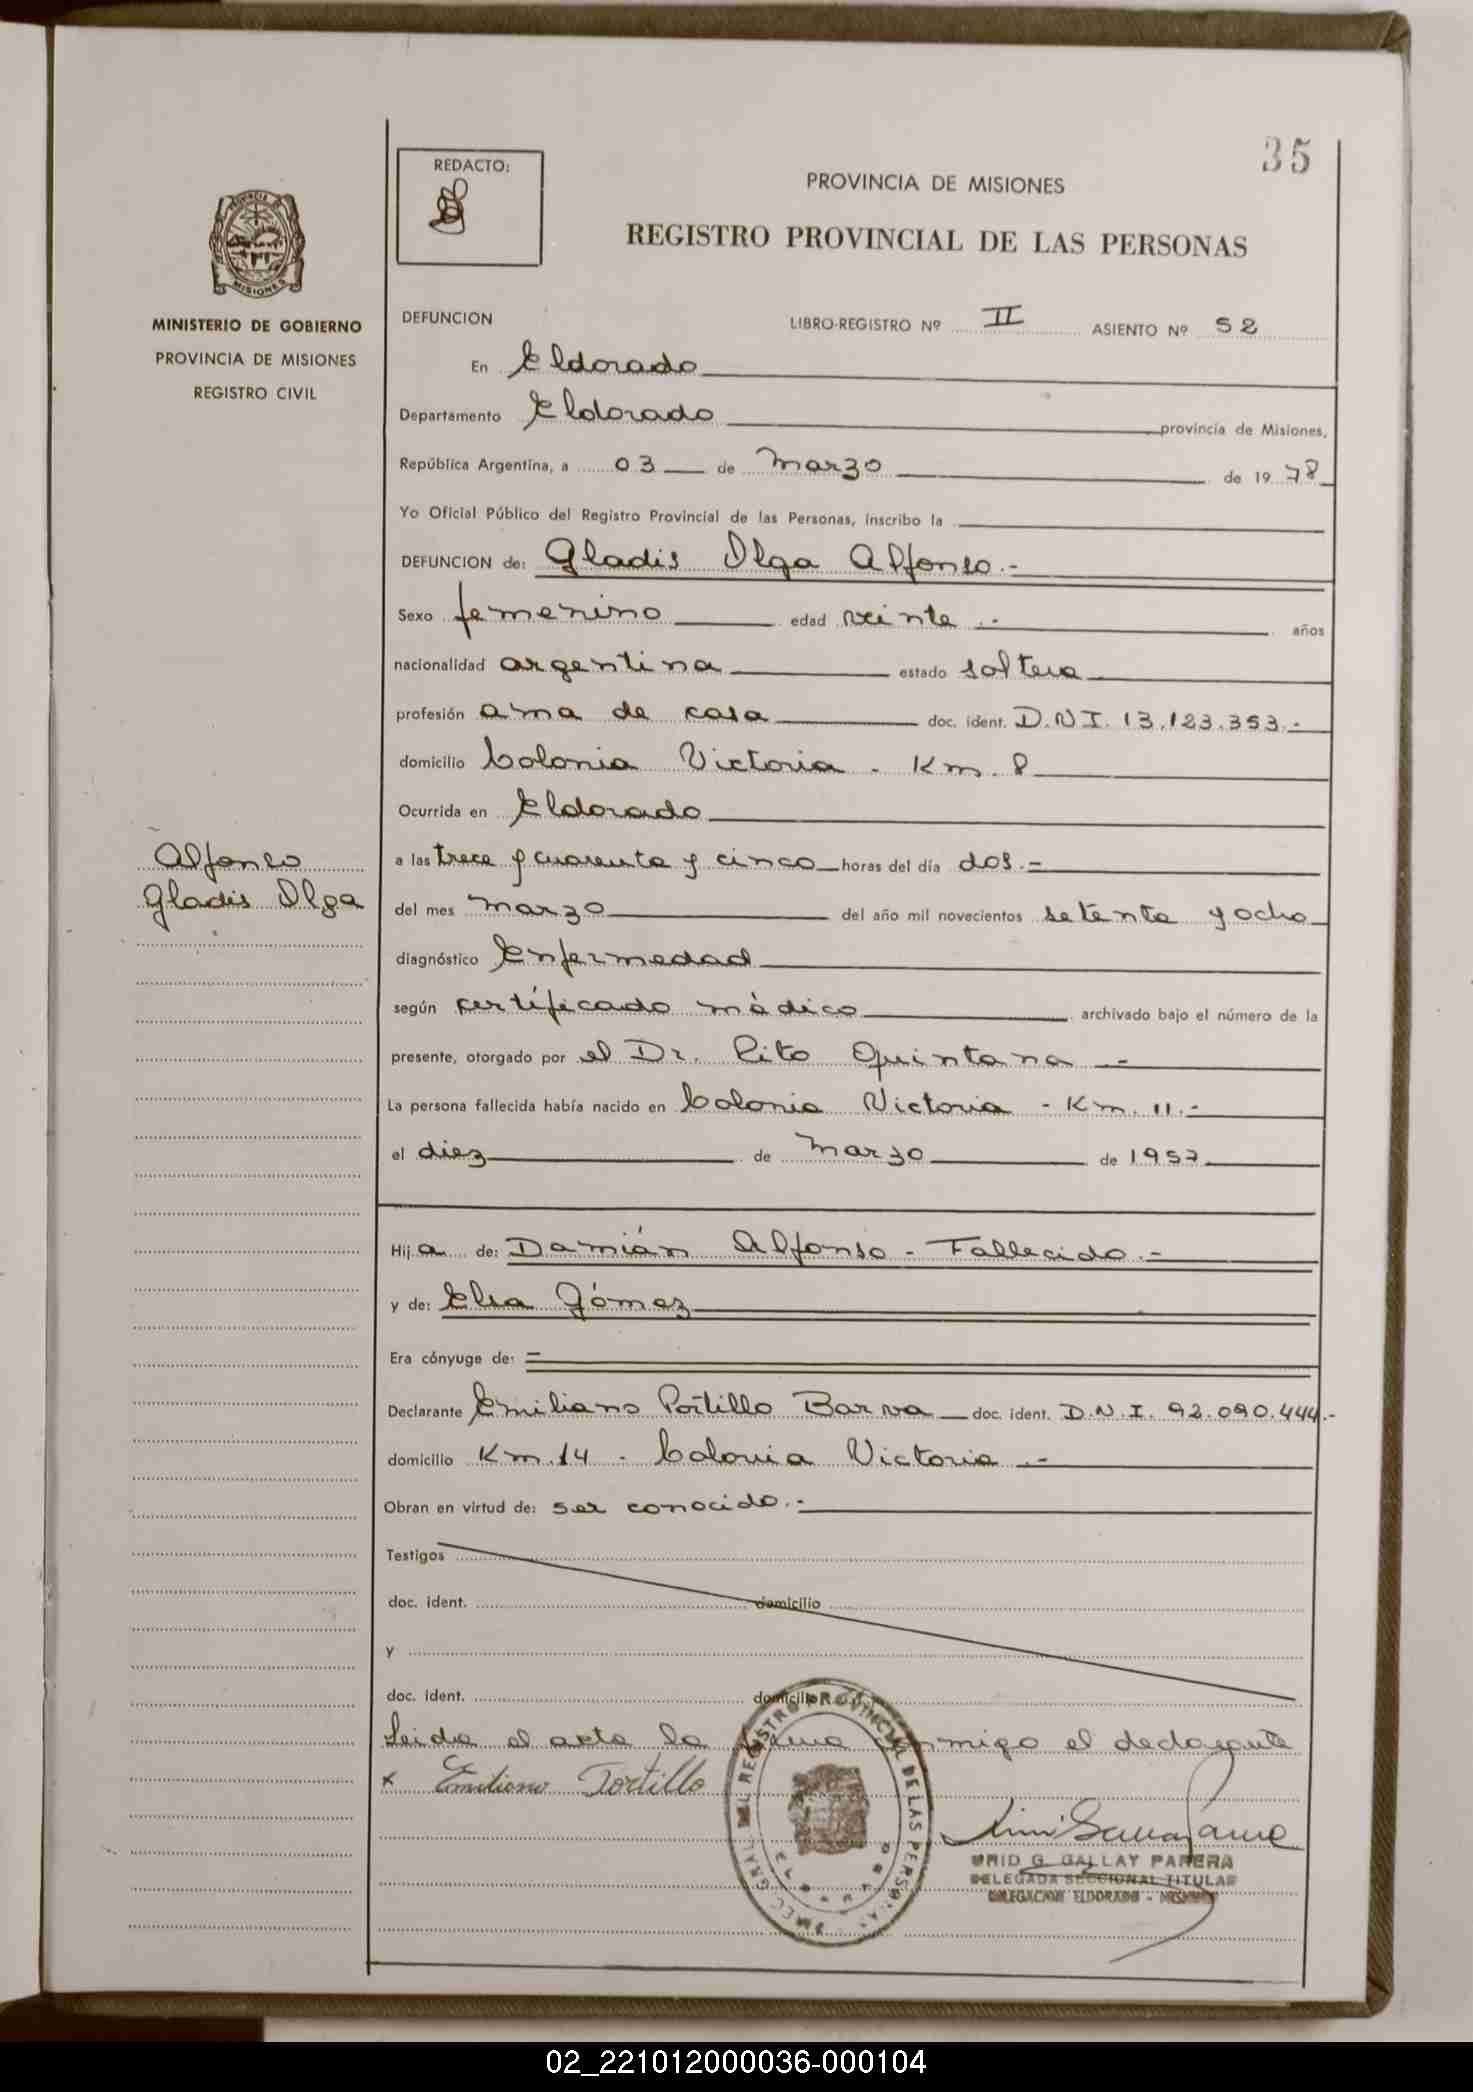 35
REDACTO:
PROVINCIA DE MISIONES
REGISTRO PROVINCIAL DE LAS PERSONAS
MINISTERIO DE GOBIERNO
PROVINCIA DE MISIONES
REGISTRO CIVIL
DEFUNCION LIBRO-REGISTRO Nº II ASIENTO Nº 52
En Eldorado
Departamento Eldorado provincia de Misiones,
República Argentina, a 03 de marzo de 1978
Yo Oficial Público del Registro Provincial de las Personas, inscribo la
DEFUNCION de: Gladis Olga Alfonso.-
Sexo femenino edad veinte.- años
nacionalidad argentina estado soltera
profesión ama de casa doc. ident. D.N.I. 13.123.353.-
domicilio Colonia Victoria - Km. 8
Ocurrida en Eldorado
Alfonso
Gladis Olga
a las trece y cuarenta y cinco horas del día dos.-
del mes marzo del año mil novecientos setenta y ocho
diagnóstico Enfermedad
según certificado médico archivado bajo el número de la
presente, otorgado por el Dr. Cito Quintana.-
La persona fallecida había nacido en Colonia Victoria - Km. 11.-
el diez de marzo de 1957
Hija de: Damián Alfonso - Fallecido.-
y de: Elsa Gómez
Era cónyuge de: =
Declarante Emiliano Portillo Barva doc. ident. D.N.I. 92.090.444.-
domicilio Km. 14 - Colonia Victoria.-
Obran en virtud de: ser conocido.-
Testigos
doc. ident. domicilio
y
doc. ident. domicilio
Leida el acta la firma conmigo el declarante
x Emiliano Portillo
DIREC. GRAL. DEL REGISTRO PROVINCIAL DE LAS PERSONAS
ELDORADO
G. GALLAY PARERA
DELEGADA SECCIONAL TITULAR
DELEGACION ELDORADO - MISIONES
02_221012000036-000104